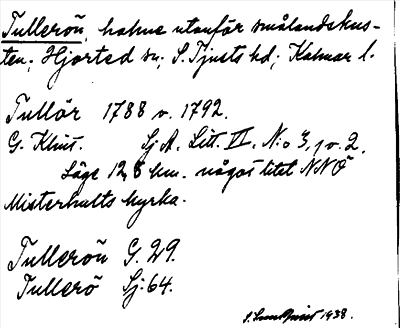 Tullerön, holme utanför smålandskus-
ten; Hjorted sn; S. Tjusts hd; Kalmar l.
Tullör 1788 o. 1792.
G. Klint. Sj A. Litt. II, N:o 3, 1 o. 2.
Läge 12,8 km. något litet NNÖ
Misterhults kyrka.
Tullerön G. 29.
Tullerö Sj. 64.
1938.